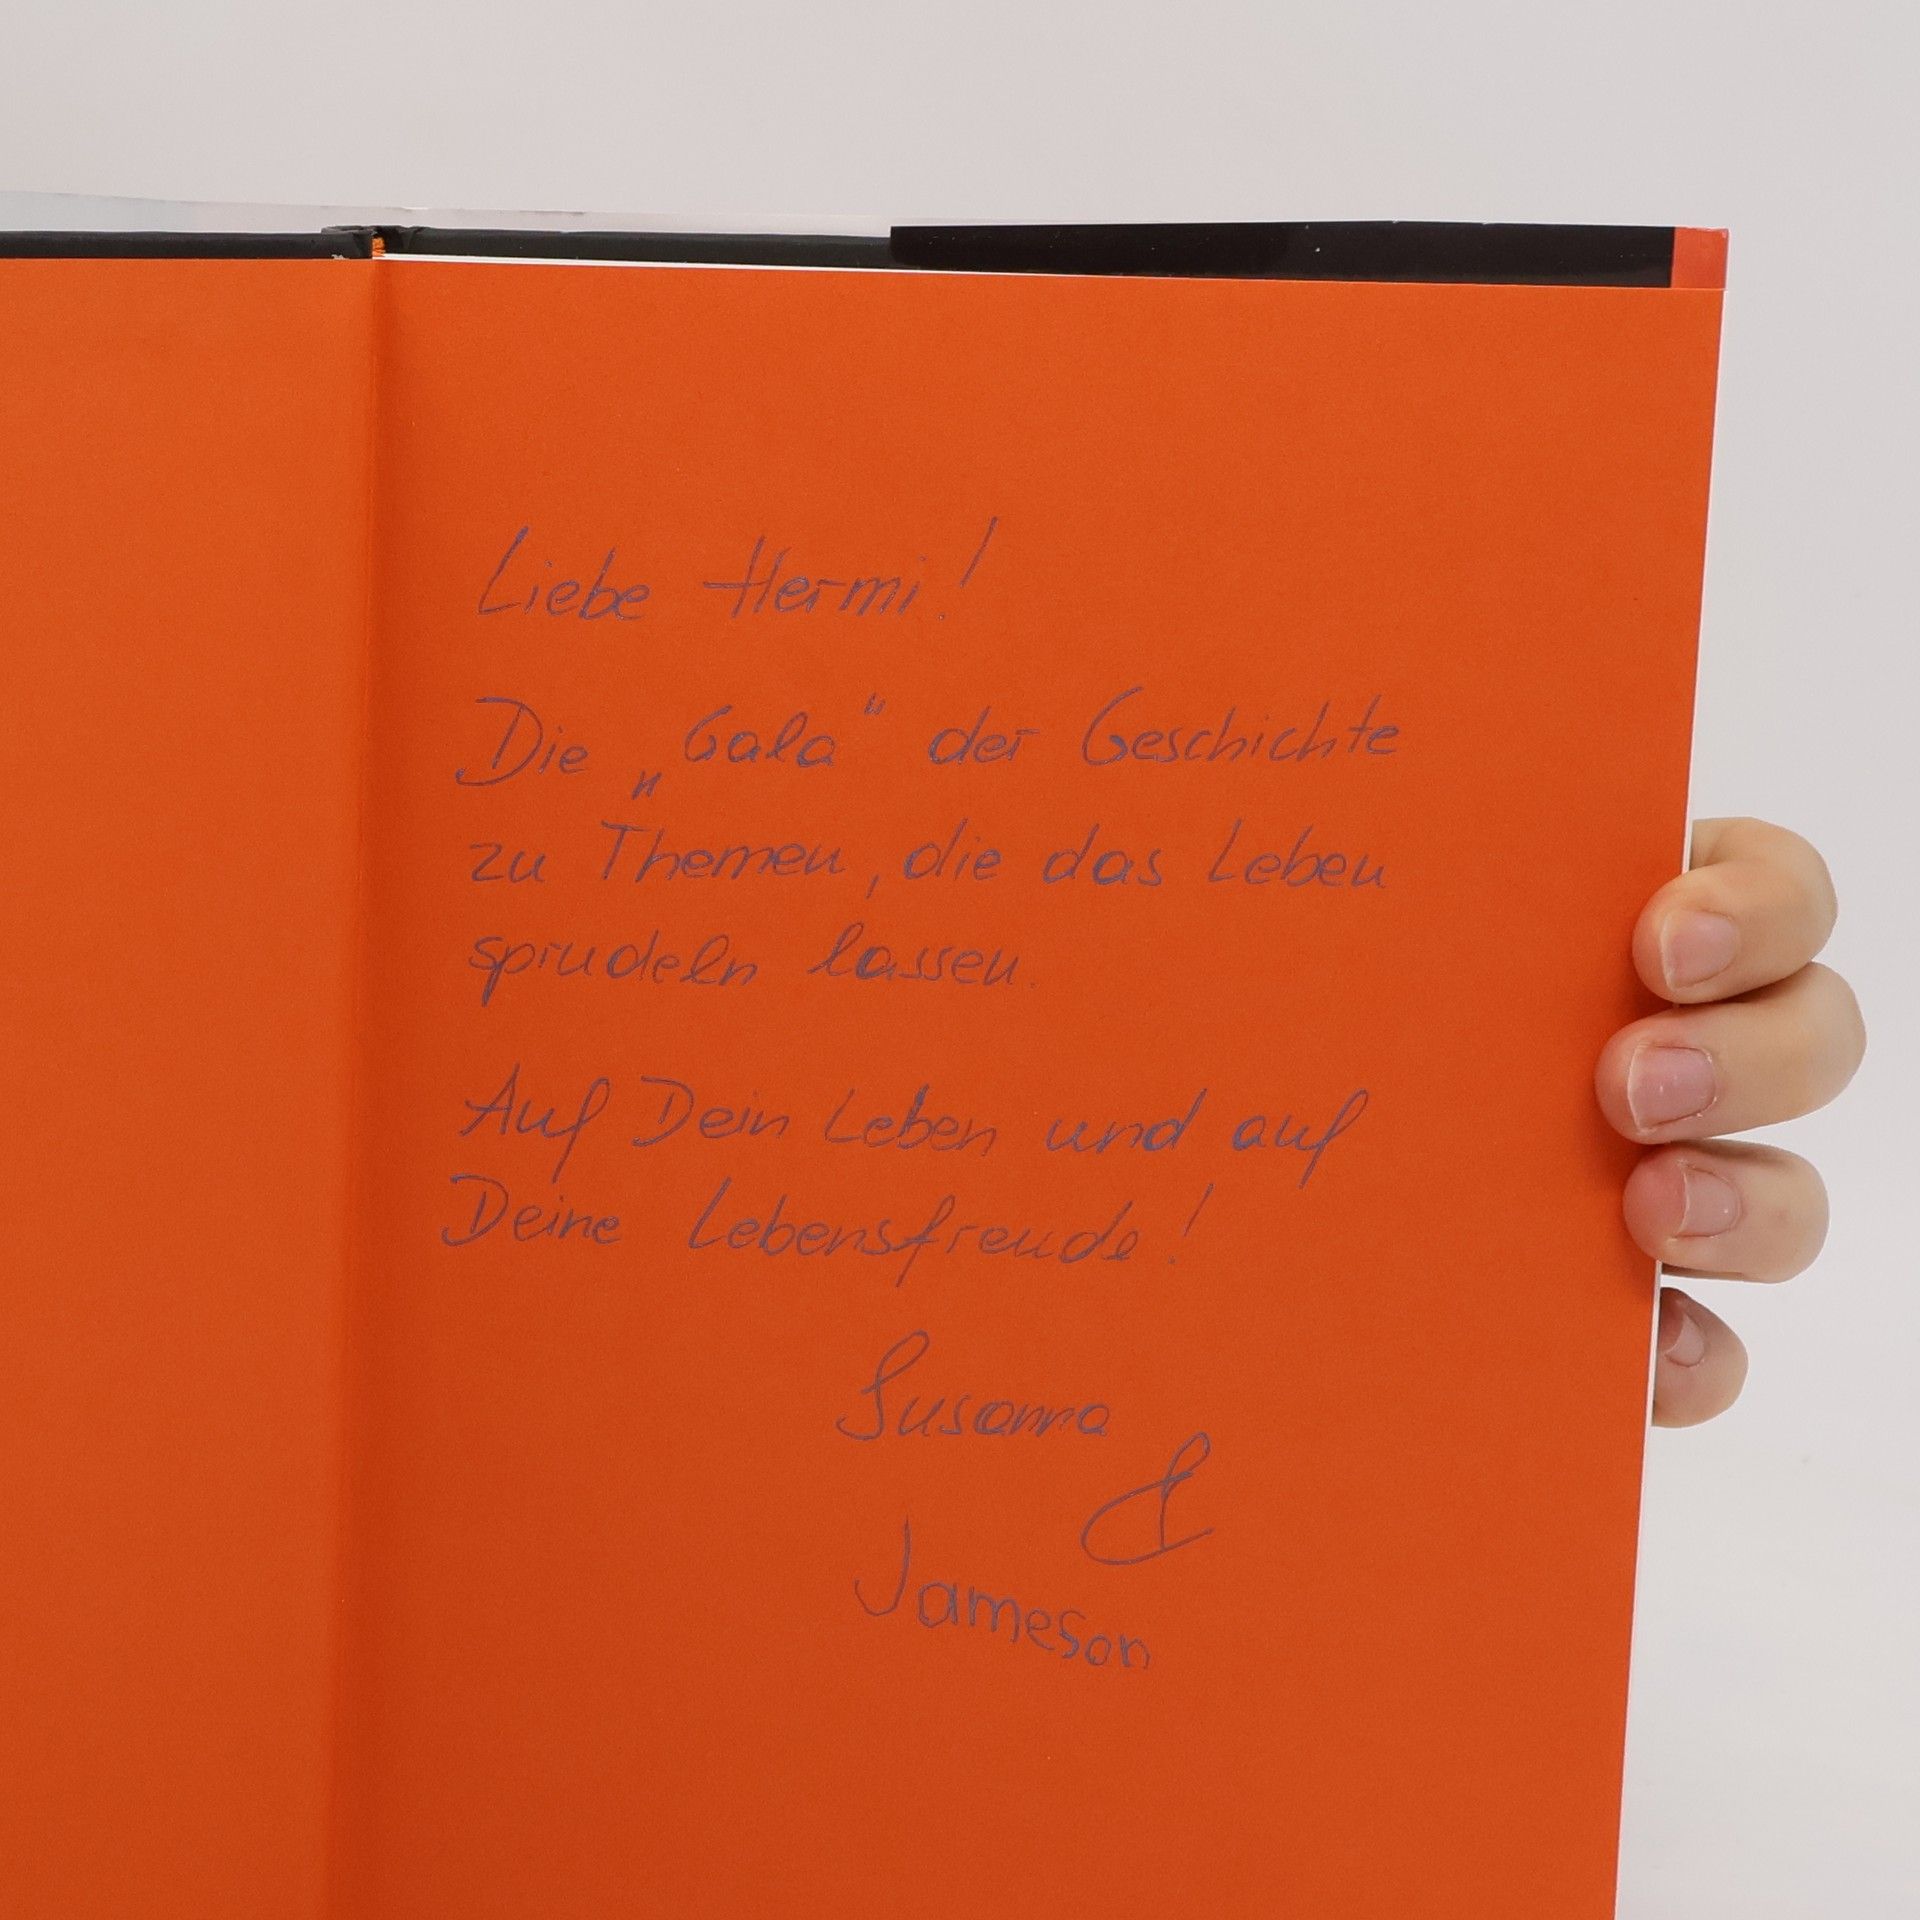 Liebe Hermi!
Die „Gala“ der Geschichte
zu Themen, die das Leben
sprudeln lassen.
Auf Dein Leben und auf
Deine Lebensfreude!
Susanna
&
Jameson